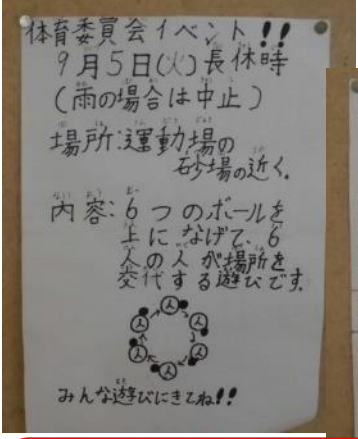 体育委員会イベント!!
9月5日(火)長休時
(雨の場合は中止)
場所:運動場の
砂場の近く。
内容:6つのボールを
上になげて、6
人の人が場所を
交代する遊びです。
人 人 人 人 人 人
みんな遊びにきてね!!